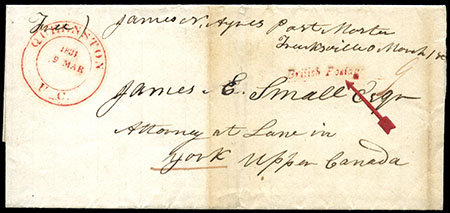 Free) James N. Ayres Post Master
Trucksville O March 1st
QUEENSTON
1831
9 MAR
U.C.
British Postage
9
James E. Small Esqr
Attorney at Law in
York Upper Canada